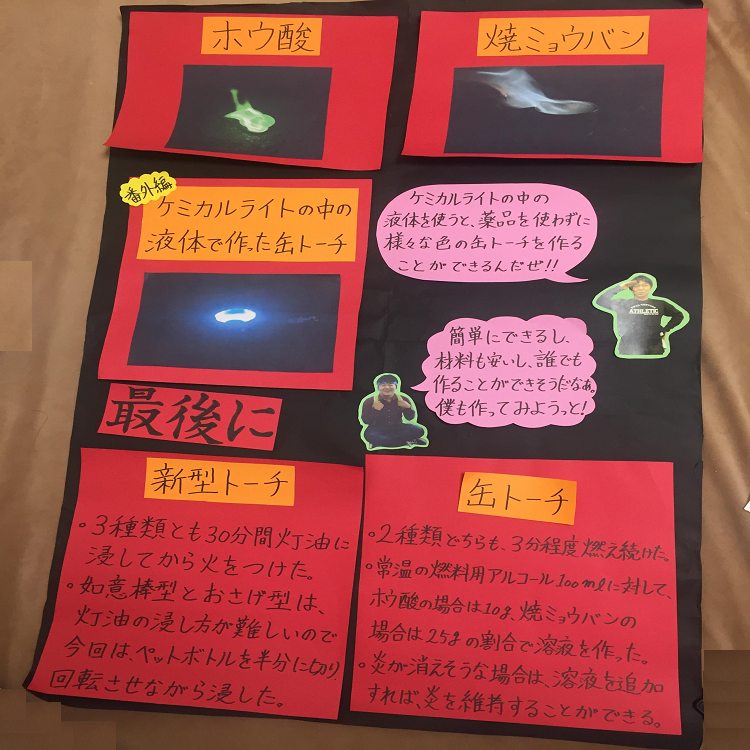 ホウ酸
焼ミョウバン
番外編
ケミカルライトの中の
液体で作った缶トーチ
ケミカルライトの中の
液体を使うと、薬品を使わずに
様々な色の缶トーチを作る
ことができるんだぜ!!
ATHLETIC
簡単にできるし、
材料も安いし、誰でも
作ることができそうだなぁ。
僕も作ってみようっと!
最後に
新型トーチ
・3種類とも30分間灯油に
浸してから火をつけた。
・如意棒型とおさげ型は、
灯油の浸し方が難しいので
今回は、ペットボトルを半分に切り
回転させながら浸した。
缶トーチ
・2種類どちらも、3分程度燃え続けた。
・常温の燃料用アルコール100mlに対して、
ホウ酸の場合は10g、焼ミョウバンの
場合は25gの割合で溶液を作った。
・炎が消えそうな場合は、溶液を追加
すれば、炎を維持することができる。